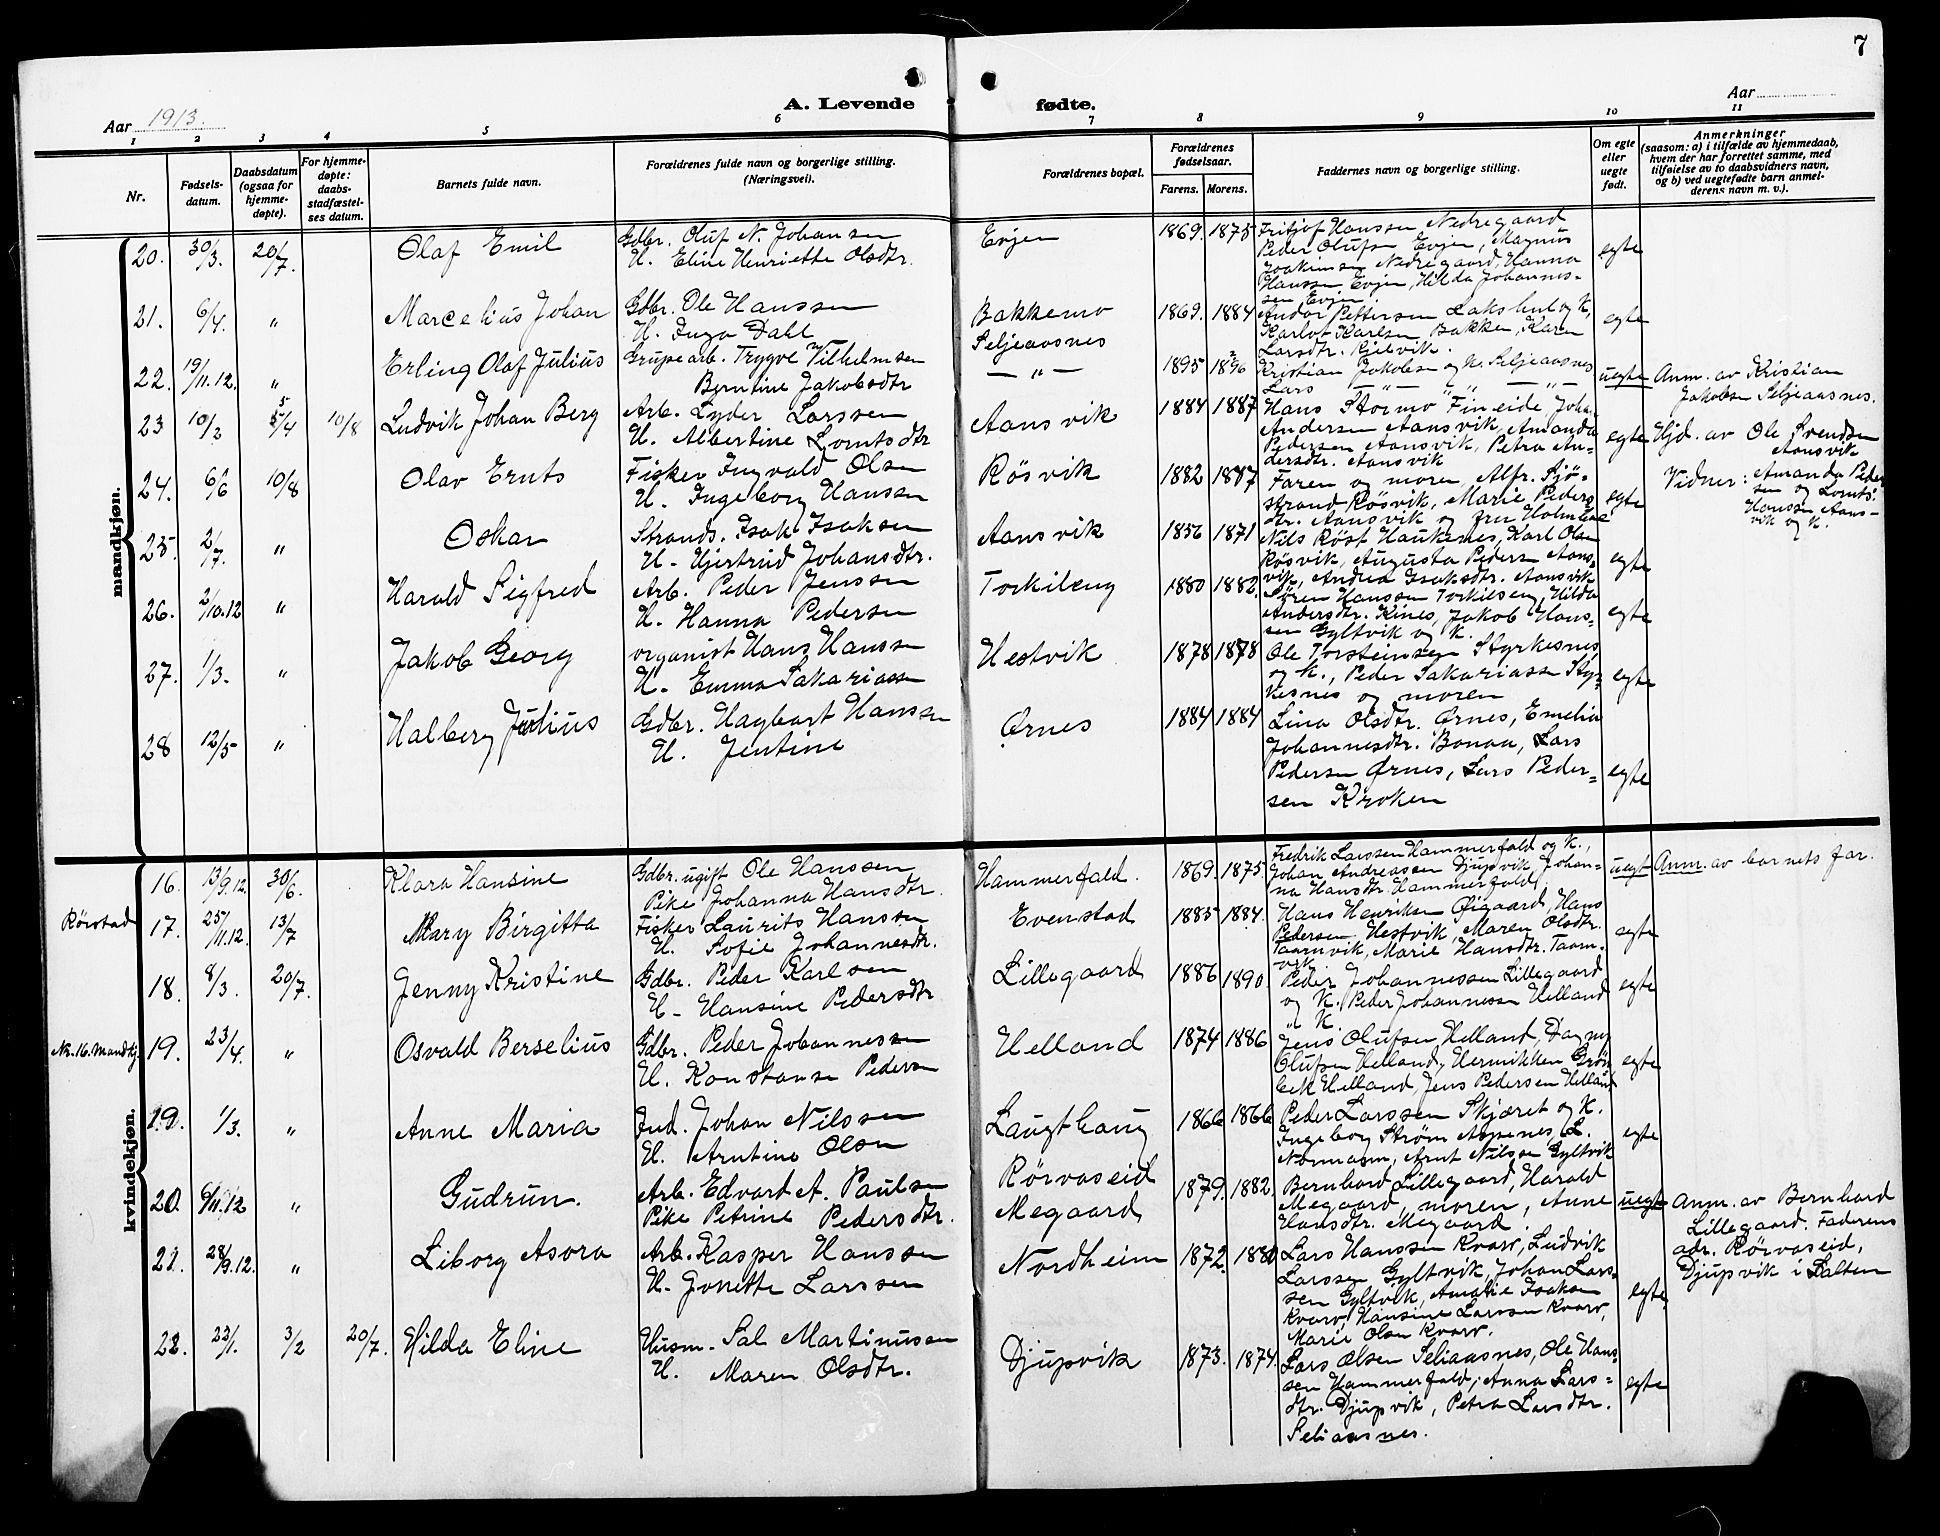 7
Aar 1913.
A. Levende fødte.
Aar
1 2 3 4 5 6 7 8 9 10 11
Nr.
Fødsels-
datum.
Daabsdatum
(ogsaa for
hjemme-
døpte).
For hjemme-
døpte:
daabs-
stadfæstel-
ses datum.
Barnets fulde navn.
Forældrenes fulde navn og borgerlige stilling.
(Næringsvei).
Forældrenes bopæl.
Forældrenes
fødselsaar.
Farens. Morens.
Faddernes navn og borgerlige stilling.
Om egte
eller
uegte
født.
Anmerkninger
(saasom: a) i tilfælde av hjemmedaab,
hvem der har forrettet samme, med
tilføielse av to daabsvidners navn,
og b) ved uegtefødte barn anmel-
derens navn m. v.).
mandkjøn.
20. 30/3. 20/7. Olaf Emil
Gdbr. Oluf N. Johansen
H. Eline Henriette Olsdtr.
Evjen 1869. 1875
Fritjof Hanssen Nedregaard
Peder Olufsen Evjen, Magnus
Joakimsen Nedregaard, Hanna
Hanssen Evjen, Hilda Johannes-
sen Evjen.
egte
21. 6/4. " Marcelius Johan
Gdbr. Ole Hanssen
H. Inga Dahl
Bakkemo 1869. 1884
Andor Pettersen Lakshul og K,
Karlof Karlsen Bakken, Karen
Larsdtr. Kjelvik.
egte
22. 19/11.12. " Erling Olaf Julius
Grubearb. Trygve Vilhelmsen
Berntine Jakobsdtr
Seljeaasnes
— " —
1895 1896
Kristian Jakobsen og K. Seljeaasnes
Lars — " — " — " —
uegte
Anm. av Kristian
Jakobsen Seljeaasnes.
23 10/2 5/4 10/8 Ludvik Johan Berg
Arb. Lyder Larssen
H. Albertine Lorntsdtr
Aansvik 1884 1887
Hans Stormo Fineide, Johan
Andersen Aansvik, Amanda
Pedersen Aansvik, Petra An-
dersdtr. Aansvik
egte
Hjd. av Ole Svendsen
Aansvik
Vidner: Amanda Peder
sen og Lornts
Hanssen Aans-
vik og K.
24. 6/6 10/8 Olav Ernts
Fisker Ingvald Olsen
H. Ingeborg Hanssen
Røsvik 1882 1887
Faren og moren, Alfr. Sjö-
strand Røsvik, Marie Peders
dtr. Aansvik og fru Holmboe
egte
25. 2/7. " Oskar
Strands. Isak Isaksen
H. Hjertrud Johansdtr.
Aansvik 1856 1871
Nils Røst Haukenes, Karl Olsen
Røsvik, Augusta Peders Aans-
vik, Andrea Isaksdtr. Aansvik
egte
26. 2/10.12 " Harald Sigfred
Arb. Peder Jenssen
H. Hanna Pedersen
Torkileng 1880 1882
Søren Hanssen Torkilseng, Hilda
Andersdtr. Kines, Jakob Hans-
sen Gyltvik og K.
egte
27. 1/3. " Jakob Georg
organist Hans Hanssen
H. Emma Sakariassen
Hestvik 1878 1878
Ole Torsteinsen Styrkesnes
og K., Peder Sakariassen Styr-
kesnes og moren
egte
28 12/5 " Halberg Julius
Gdbr. Hagbart Hanssen
H. Jentine
Ørnes 1884 1884
Lina Olsdtr. Ørnes, Emelia
Johannesdtr. Bonaa, Lars
Pedersen Ørnes, Lars Peder-
sen Kroken
egte
kvindekjøn.
16. 13/9.12. 30/6. Klara Hansine
Gdbr. ugift Ole Hanssen
Pike Johanna Hansdtr.
Hammerfald. 1869. 1875.
Fredrik Larssen Hammerfald og K.,
Johan Andreassen Djupvik, Johan-
na Hansdtr. Hammerfald
uegt
Anm. av barnets far.
Rørstad
17. 25/11.12. 13/7 Mary Birgitta
Fisker Laurits Hanssen
H. Sofie Johannesdtr.
Evenstad 1885 1884.
Hans Henriksen Øigaard, Hans
Pedersen Hestvik, Maren Olsdtr.
Taarnvik, Marie Hansdtr. Taarn-
vik
egte
18. 8/3. 20/7. Jenny Kristine
Gdbr. Peder Karlsen
H. Hansine Pedersdtr
Lillegaard 1886 1890
Peder Johannessen Lillegaard
og K. Peder Johannessen Helland
" K.
egte
Nr. 16. Mandkj.
19. 23/4. " Osvald Berselius
Gdbr. Peder Johannessen
H. Konstanse Pedersen
Helland 1874 1886
Jens Olufsen Helland, Dagny
Olufsen Helland, Hermikken Grön-
bek Helland, Jens Pedersen Helland
egte
19. 1/3. " Anne Maria
Ind. Johan Nilssen
H. Arntine Olsen
Laugthaug 1866 1866
Peder Larssen Skjæret og K.
Ingeborg Strøm Aspenes, L.
Normann, Arnt Nilssen Gyltvik
egte
20. 6/11.12 " Gudrun.
Arb. Edvard A. Paulsen
Pike Petrine Pedersdtr.
Rørvaseid
Megaard
1879. 1882
Bernhard Lillegaard, Harald
Megaard, moren, Anne
Hansdtr. Megaard
uegt
Anm. av Bernhard
Lillegaard. Faderens
adr. Rørvaseid,
Djupvik i Salten
21. 28/9.12. " Liborg Asora
Arb. Kasper Hanssen
H. Jonette Larssen
Nordheim 1872. 1880
Lars Hanssen Kvarv, Ludvik
Larssen Gyltvik, Johan Lars-
sen Gyltvik, Amalie Isaksen
Kvarv, Hansine Larssen Kvarv,
Marie Olsen Kvarv.
egte
22. 22/1. 3/2 20/7. Hilda Eline
Husm. Sal Martinussen
H. Maren Olsdtr.
Djupvik 1873. 1874.
Lars Olsen Seliaasnes, Ole Hans-
sen Hammerfald, Anna Lars-
dtr. Djupvik, Petra Larsdtr.
Seliaasnes.
egte